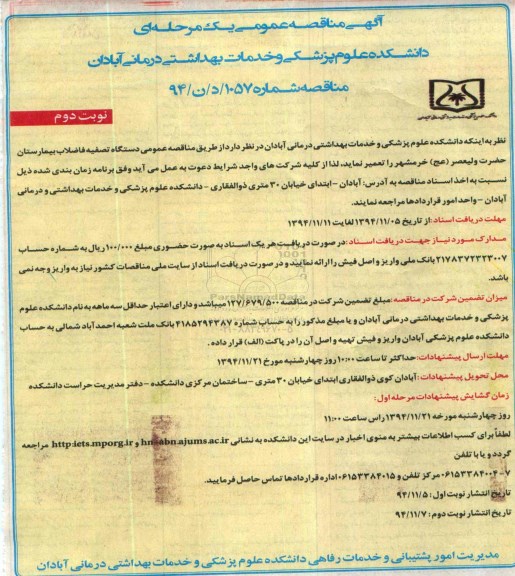 آگهی مناقصه عمومی یک مرحله ای
دانشکده علوم پزشکی و خدمات بهداشتی درمانی آبادان
مناقصه شماره ۱۰۵۷/د/ن/۹۴
نوبت دوم
نظر به اینکه دانشکده علوم پزشکی و خدمات بهداشتی درمانی آبادان در نظر دارد از طریق مناقصه عمومی دستگاه تصفیه فاضلاب بیمارستان
حضرت ولیعصر (عج) خرمشهر را تعمیر نماید، لذا از کلیه شرکت های واجد شرایط دعوت به عمل می آید وفق برنامه زمان بندی شده ذیل
نسبت به اخذ اسناد مناقصه به آدرس: آبادان – ابتدای خیابان ۳۰ متری ذوالفقاری – دانشکده علوم پزشکی و خدمات بهداشتی و درمانی
آبادان – واحد امور قراردادها مراجعه نمایند.
مهلت دریافت اسناد: از تاریخ ۱۳۹۴/۱۱/۰۵ لغایت ۱۳۹۴/۱۱/۱۱
مدارک مورد نیاز جهت دریافت اسناد: در صورت دریافت هر یک اسناد به صورت حضوری مبلغ ۱۰۰/۰۰۰ ریال به شماره حساب
۲۱۷۸۳۷۲۳۲۳۰۰۷ بانک ملی واریز و اصل فیش را ارائه نمایند و در صورت دریافت اسناد از سایت ملی مناقصات کشور نیاز به واریز وجه نمی
باشد.
میزان تضمین شرکت در مناقصه: مبلغ تضمین شرکت در مناقصه ۱۲۷/۶۷۹/۵۰۰ میباشد و دارای اعتبار حداقل سه ماهه به نام دانشکده علوم
پزشکی و خدمات بهداشتی درمانی آبادان و یا مبلغ مذکور را به حساب شماره ۴۱۸۵۲۹۴۳۸۷ بانک ملت شعبه احمدآباد شمالی به حساب
دانشکده علوم پزشکی آبادان واریز و فیش تهیه و اصل آن را در پاکت (الف) قرار داده.
مهلت ارسال پیشنهادات: حداکثر تا ساعت ۱۰:۰۰ روز چهارشنبه مورخ ۱۳۹۴/۱۱/۲۱
محل تحویل پیشنهادات: آبادان کوی ذوالفقاری ابتدای خیابان ۳۰ متری – ساختمان مرکزی دانشکده – دفتر مدیریت حراست دانشکده
زمان گشایش پیشنهادات مرحله اول:
روز چهارشنبه مورخه ۱۳۹۴/۱۱/۲۱ راس ساعت ۱۱:۰۰
لطفاً برای کسب اطلاعات بیشتر به منوی اخبار در سایت این دانشکده به نشانی .abn.ajums.ac.ir و http:iets.mporg.ir مراجعه
گردد و یا با تلفن
۰۶۱۵۳۳۸۴۰۰۴-۷ مرکز تلفن و ۰۶۱۵۳۳۸۴۰۱۵ اداره قراردادها تماس حاصل فرمایید.
تاریخ انتشار نوبت اول: ۹۴/۱۱/۵
تاریخ انتشار نوبت دوم: ۹۴/۱۱/۷
مدیریت امور پشتیبانی و خدمات رفاهی دانشکده علوم پزشکی و خدمات بهداشتی درمانی آبادان